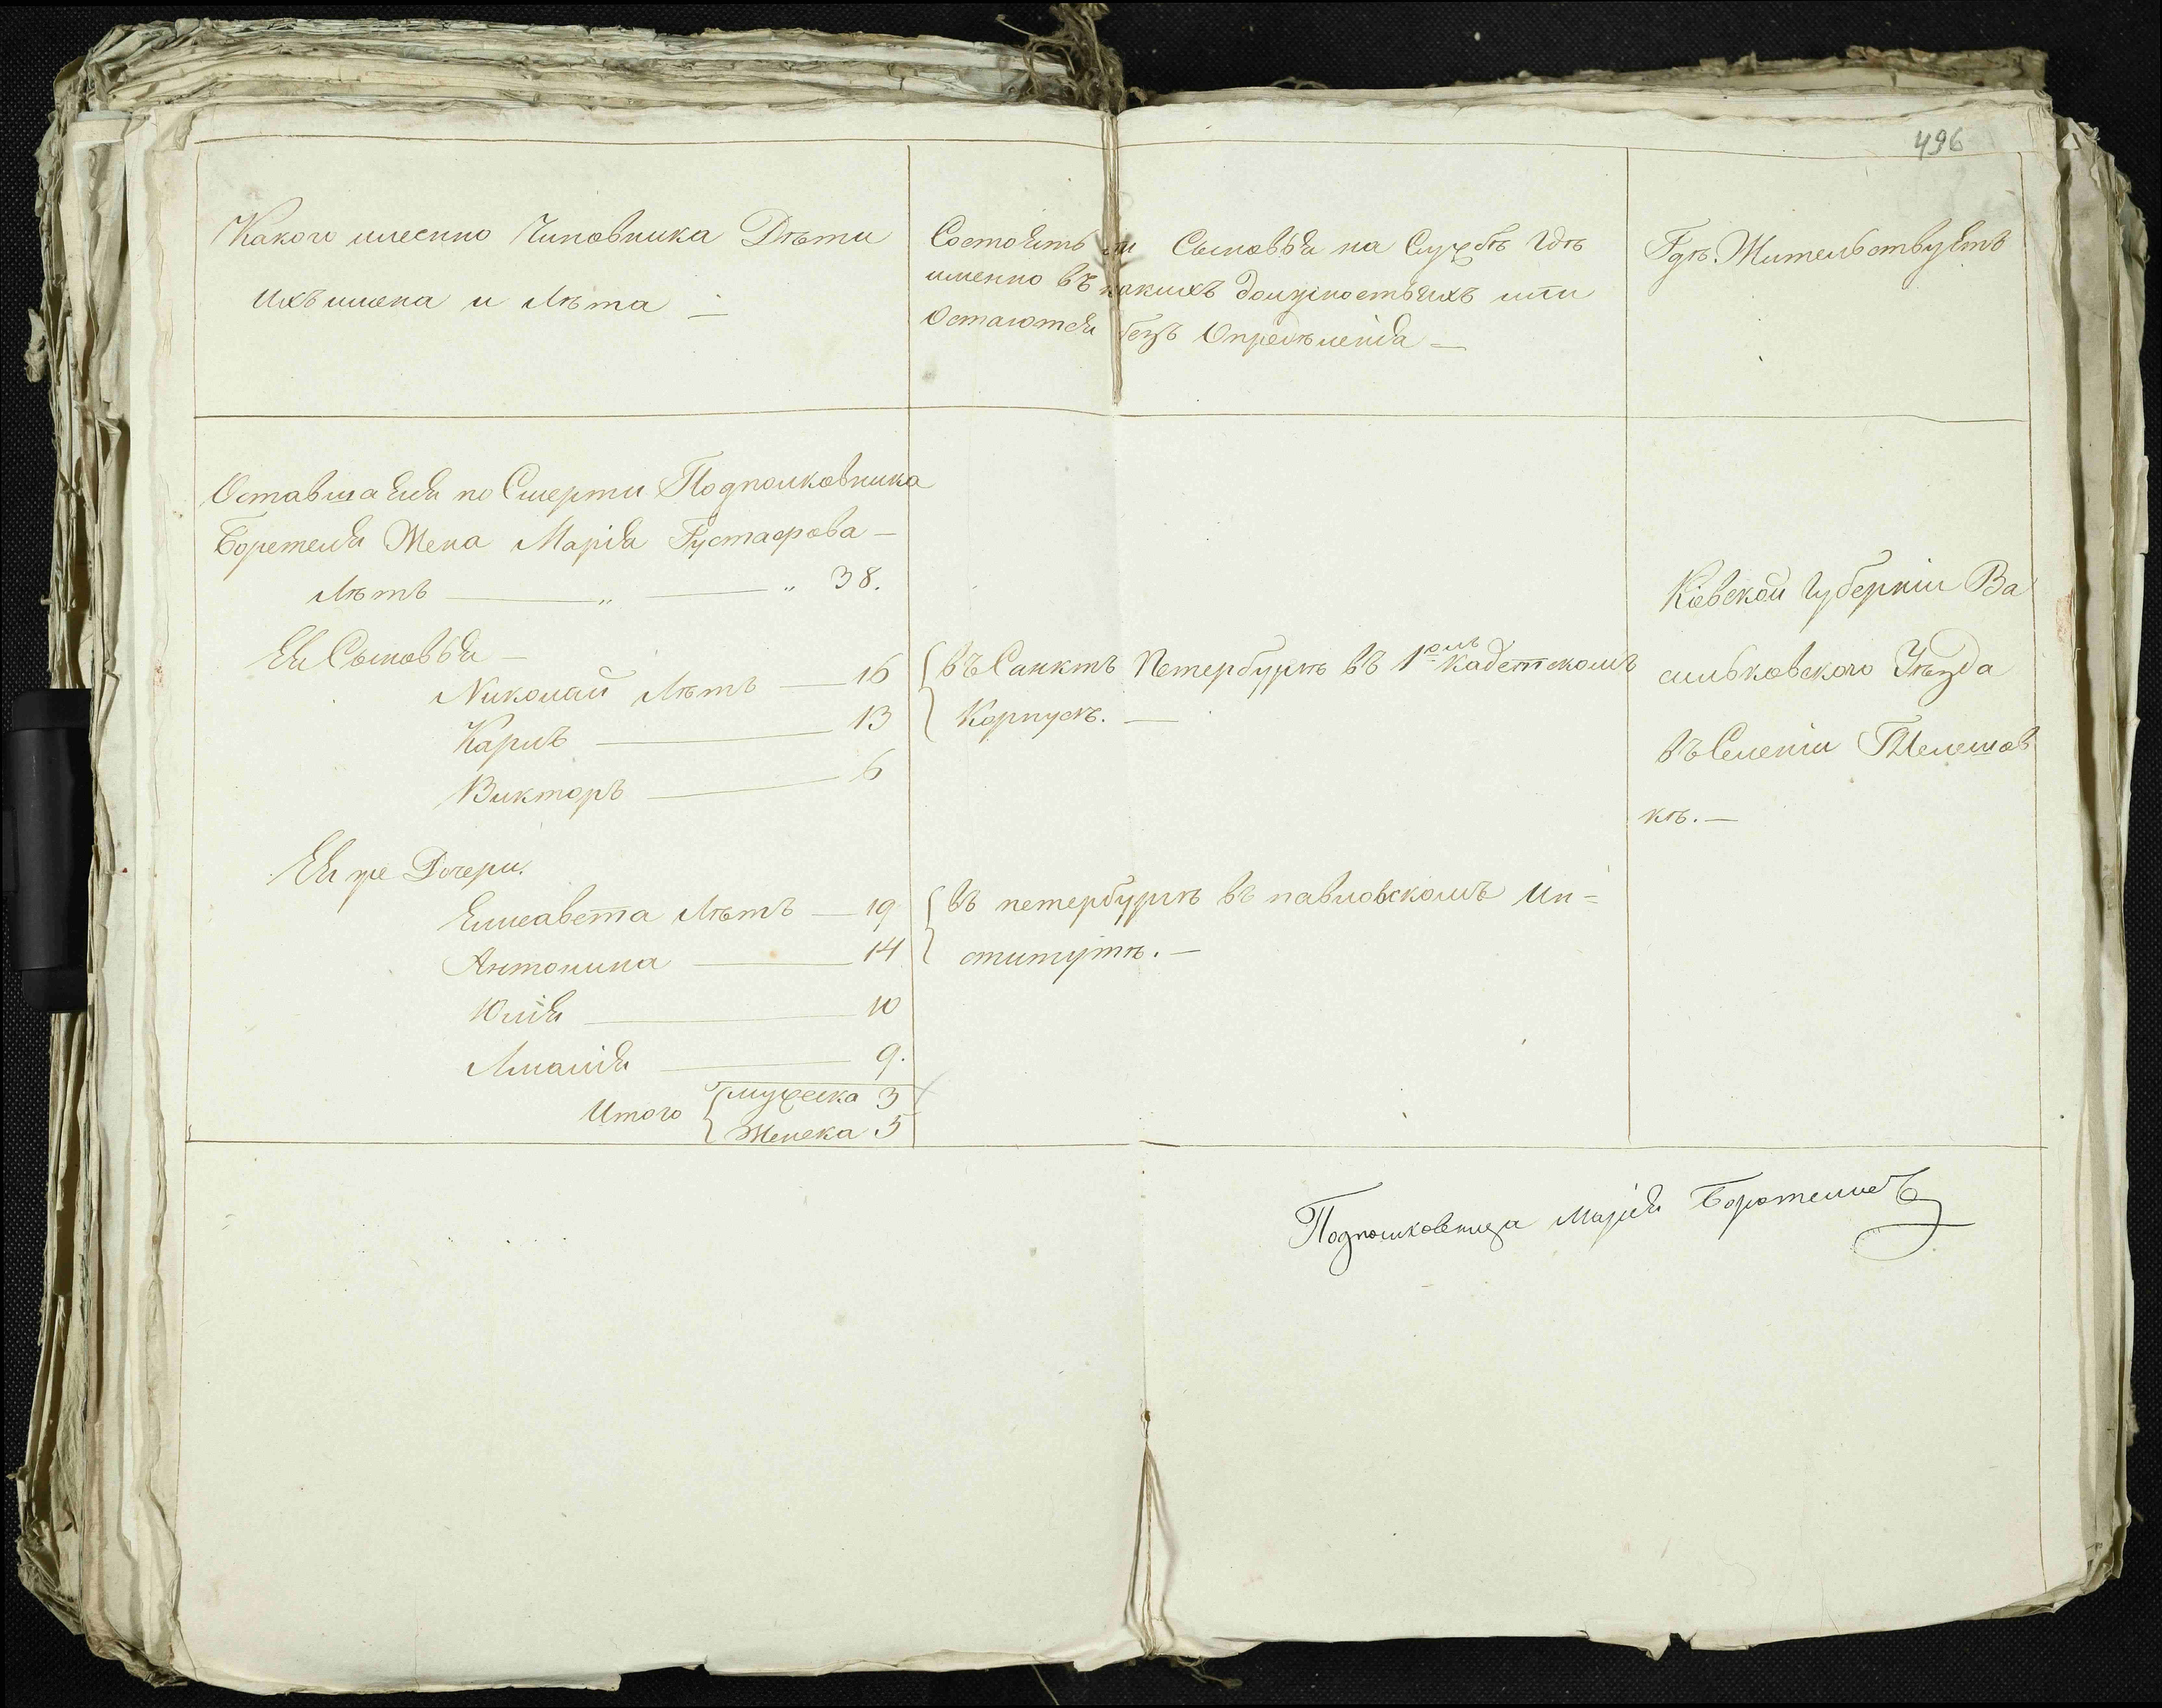 496
Какого именно Чиновника Дѣти
ихъ имена и лѣта —
Состоятъ ли Сыновья на Службѣ гдѣ
именно въ какихъ должностяхъ или
Остаются безъ Опредѣленія —
Гдѣ Жительствуетъ
Оставшаяся по Смерти Подполковника
Боретеля Жена Марія Густафова —
Лѣтъ — „ — „ 38.
Ея Сыновья —
Николай Лѣтъ — 16
Карлъ — 13
Викторъ — 6
Ея же Дочери.
Елисавета Лѣтъ — 19
Антонина — 14
Юлія — 10
Амалія — 9.
Итого { мужеска 3
Женска 5
{ въ Санктъ Петербургѣ въ 1омъ кадетскомъ
Корпусѣ. —
{ въ петербургѣ въ павловскомъ Ин=
ститутѣ. —
Кіевской губерніи Ва
сильковского Уѣзда
въ Селеніи
кѣ. —
Подполковница Марія